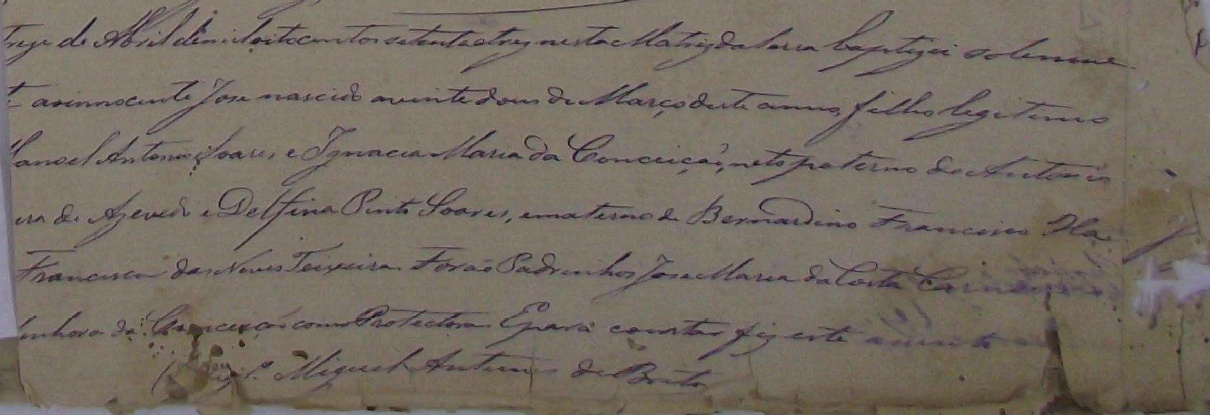 treze de Abril de mil oitocentos setenta e trez nesta Matriz da Serra baptizei solemne
te ao innocente Jose nascido a vinte dous de Março deste anno, filho legitimo
Manoel Antonio Soares, e Ignacia Maria da Conceição, neto paterno de Antonio
de Azevedo e Delfina Pinto Soares, e materno de Bernardino Francisco
Francisca das Neves Teixeira Forão Padrinhos Jose Maria da Costa
Senhora da Conceição como Protectora E para constar fiz este
Miguel Antunes de Brito